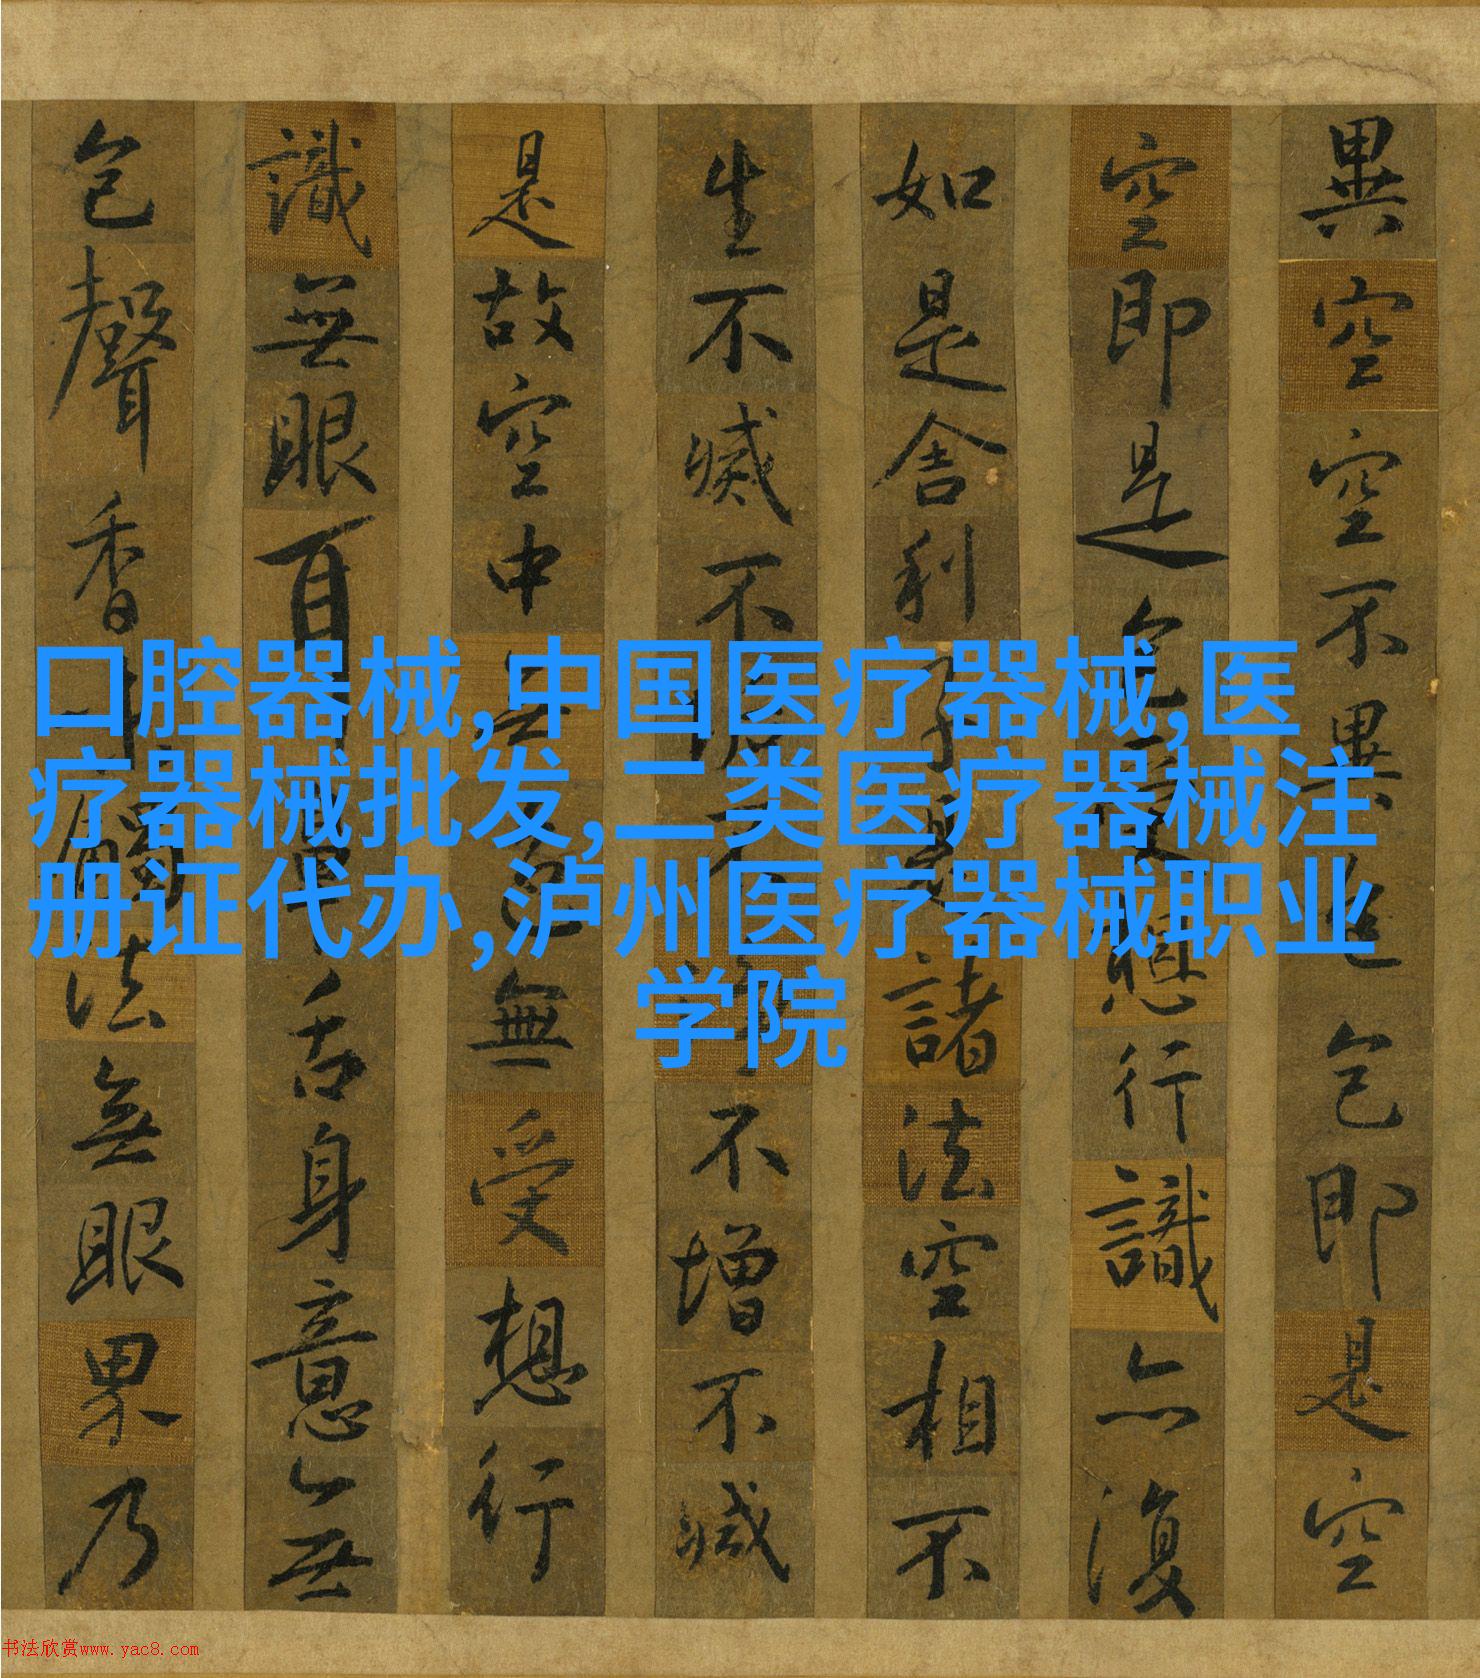 口腔器械,中国医疗器械,医
疗器械批发,二类医疗器械注
册证代办,泸州医疗器械职业
学院
異空空不異色色即是空
空即是色受想行識亦復
如是舍利子是諸法空相不
生不滅不垢不淨不增不減
是故空中無色無受想行
識無眼耳鼻舌身意無
色聲香味觸法無眼界乃
书法欣赏www.yac8.com